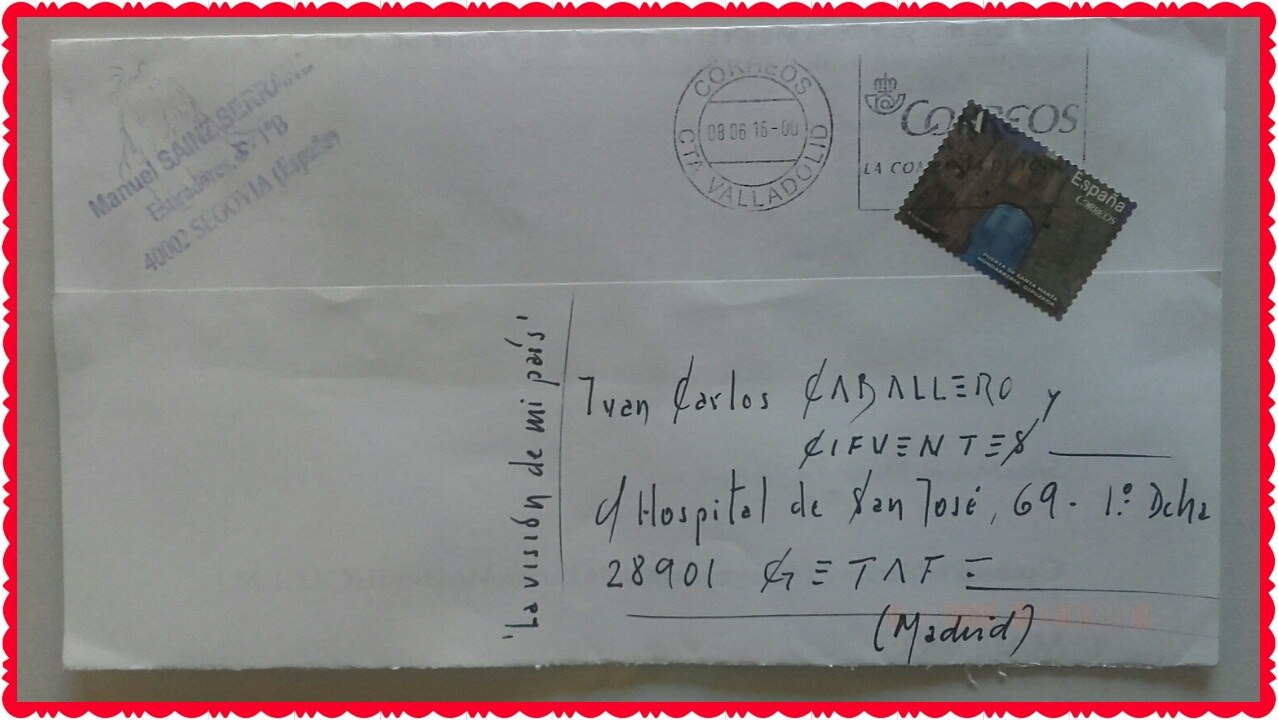 Manuel SÁINZ SERRANO
5-1ºB
40002 SEGOVIA (España)
CORREOS
08 06 16-00
CTA VALLADOLID
CORREOS
LA
España
CORREOS
PUERTA DE SANTA MARÍA
HONDARRIBIA. GIPUZKOA
'La visión de mi país'
Ivan Carlos CABALLERO y
CIFUENTES
C/ Hospital de San José, 69 - 1.º Dcha
28901 GETAFE
(Madrid)